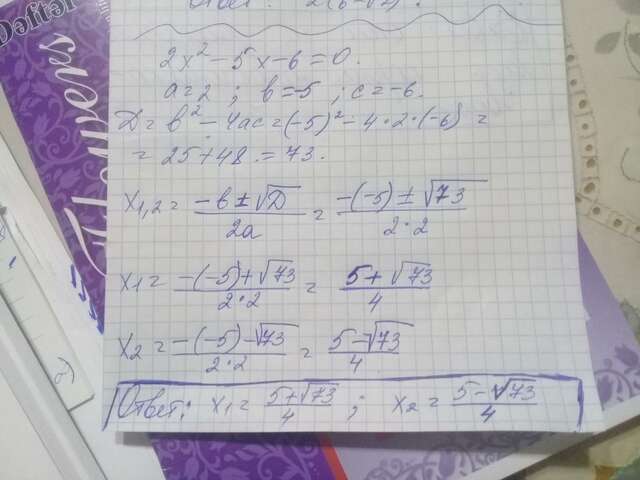 Dəftər
Flowers
2x² - 5x - 6 = 0.
a = 2 ; b = -5 ; c = -6.
D = b² - 4ac = (-5)² - 4·2·(-6) =
= 25 + 48 = 73.
x1,2 = (-b ± √D)/2a = (-(-5) ± √73)/2·2
x1 = (-(-5) + √73)/2·2 = (5 + √73)/4
x2 = (-(-5) - √73)/2·2 = (5 - √73)/4
Ответ: x1 = (5 + √73)/4 ; x2 = (5 - √73)/4